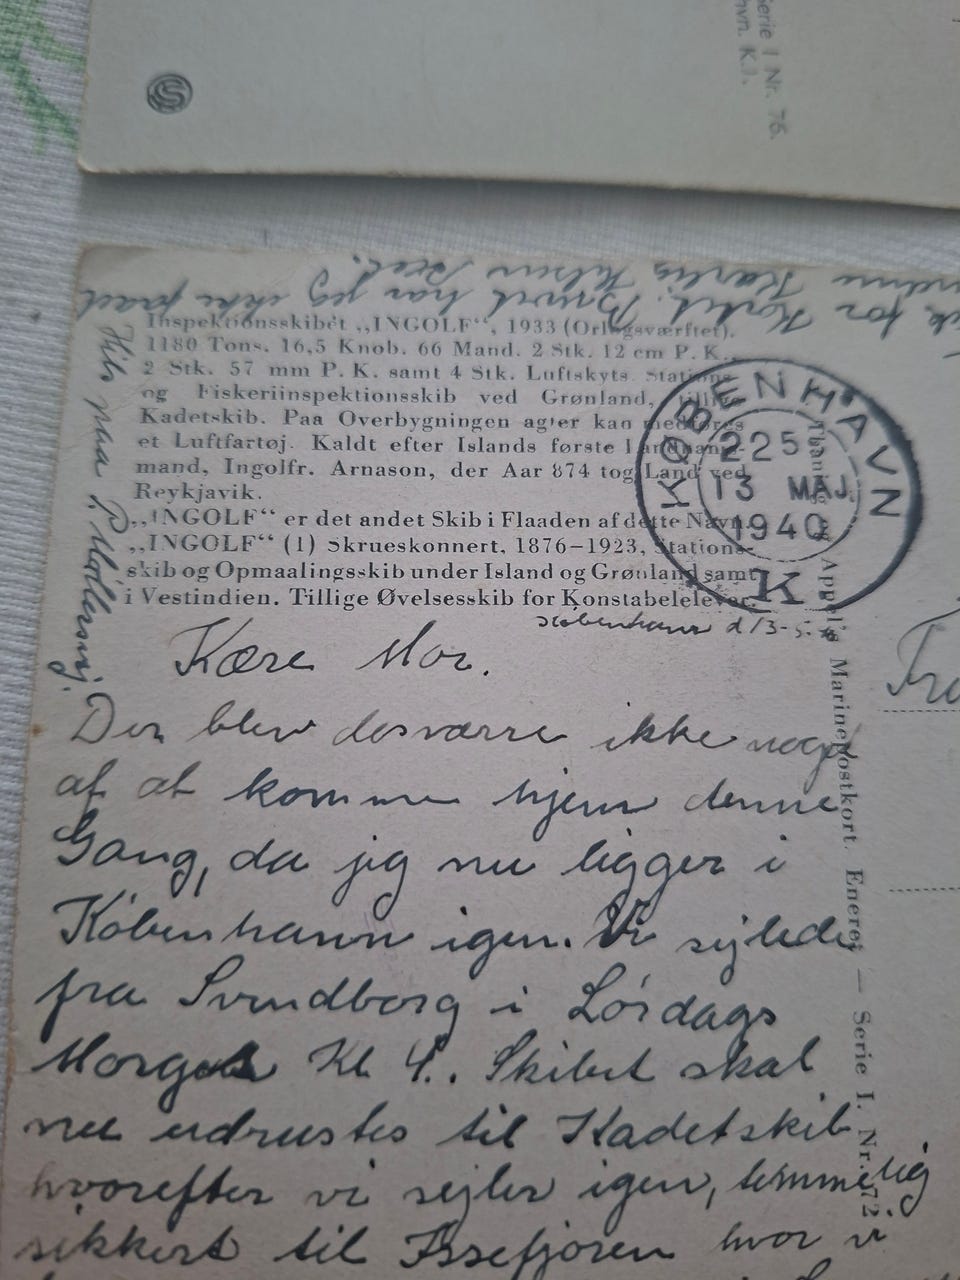 Serie I Nr. 76.
hvn. K.
for Kortet. Brevet har jeg ikke faaet
Hils paa P. Møllersvej.
Inspektionsskibet „INGOLF“, 1933 (Orlogsværftet).
1180 Tons. 16,5 Knob. 66 Mand. 2 Stk. 12 cm P. K.,
2 Stk. 57 mm P. K. samt 4 Stk. Luftskyts. Stations-
og Fiskeriinspektionsskib ved Grønland, tillige
Kadetskib. Paa Overbygningen agter kan medføres
et Luftfartøj. Kaldt efter Islands første Landnams-
mand, Ingolfr. Arnason, der Aar 874 tog Land ved
Reykjavik.
„INGOLF“ er det andet Skib i Flaaden af dette Navn.
„INGOLF“ (1) Skrueskonnert, 1876–1923, Stations-
skib og Opmaalingsskib under Island og Grønland samt
i Vestindien. Tillige Øvelsesskib for Konstabelelever.
KØBENHAVN
225
13 MAJ.
1940
K
København d. 13-5.
Kære Mor.
Der blev desværre ikke noget
af at komme hjem denne
Gang, da jeg nu ligger i
København igen. Vi sejlede
fra Svendborg i Lørdags
Morges Kl. 4. Skibet skal
nu udrustes til Kadetskib
hvorefter vi sejler igen, temmelig
sikkert til Issefjoren hvor vi
Appel's Marinepostkort. Eneret — Serie I. Nr. 72